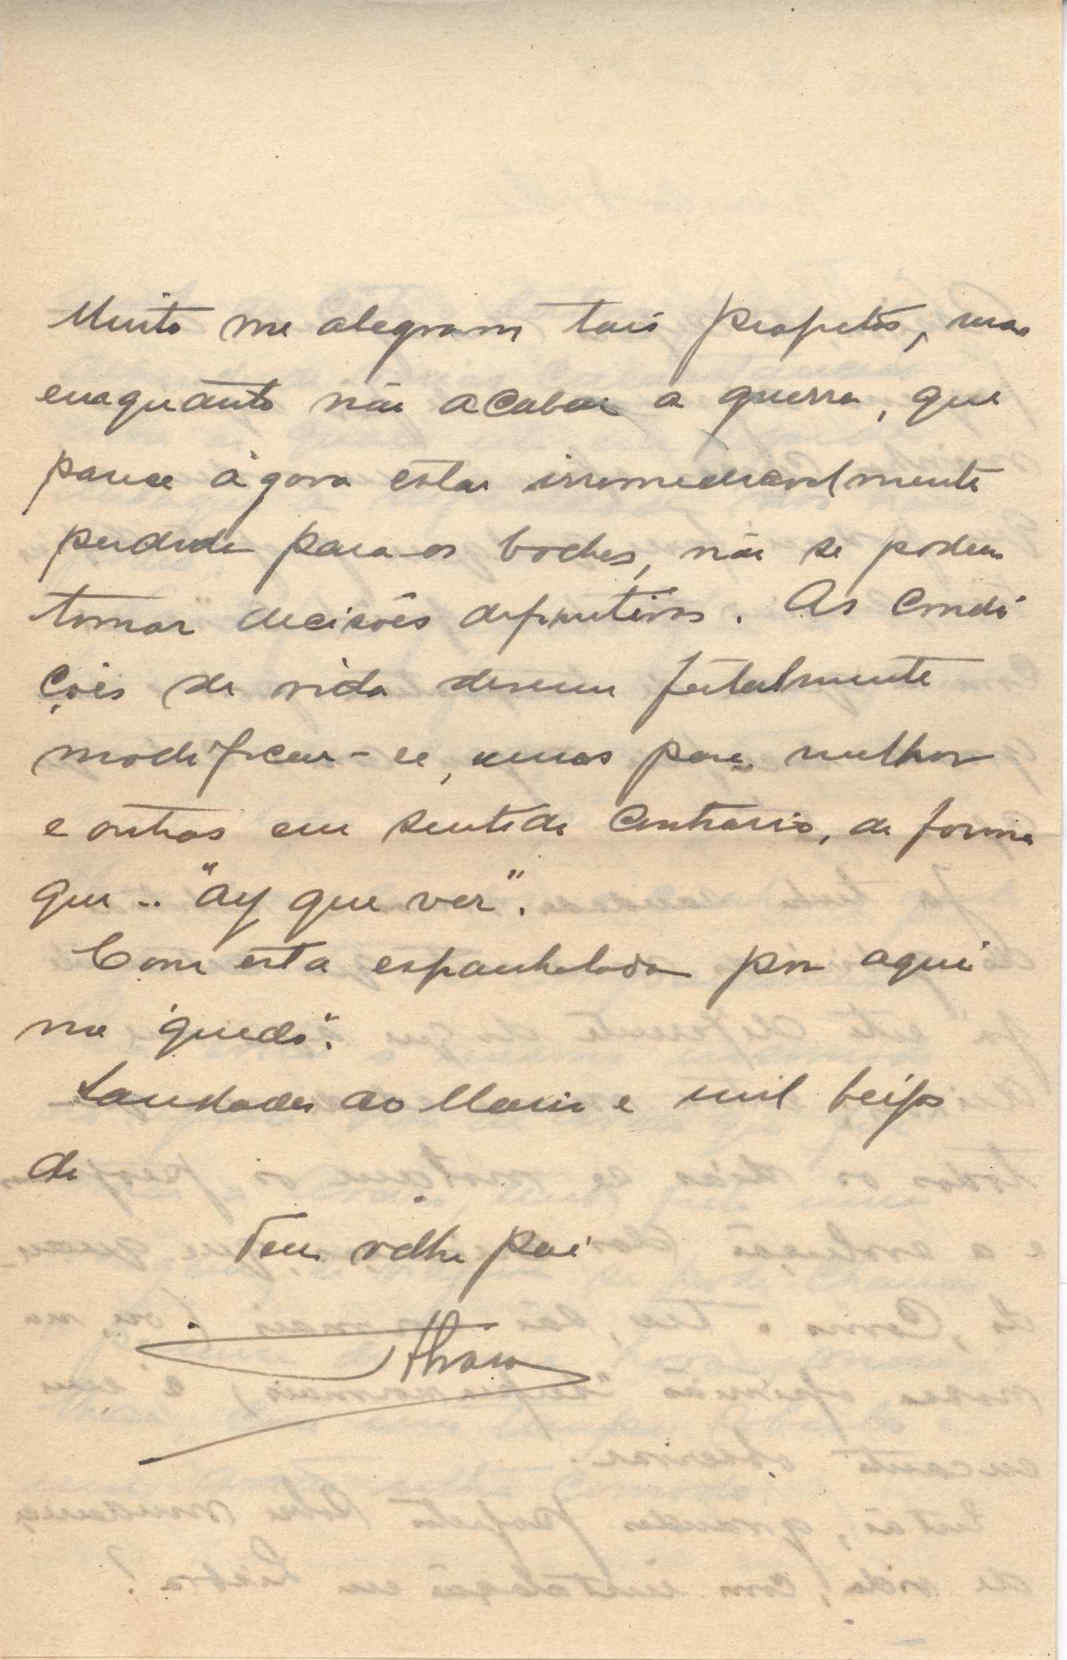 Muito me alegram tais projetos, mas
enaquanto não acabar a guerra, que
parece ágora estar irremediavelmente
perdida para os boches, não se podem
tomar decisões definitivas. As condi
ções de vida devem fatalmente
modificar-se, umas para melhor
e outras em sentido contrario, de forma
que .. "ay que ver".
Com esta espanholada por aqui
me "quedo".
Saudades ao Mario e mil beijos
de
Teu velho pai